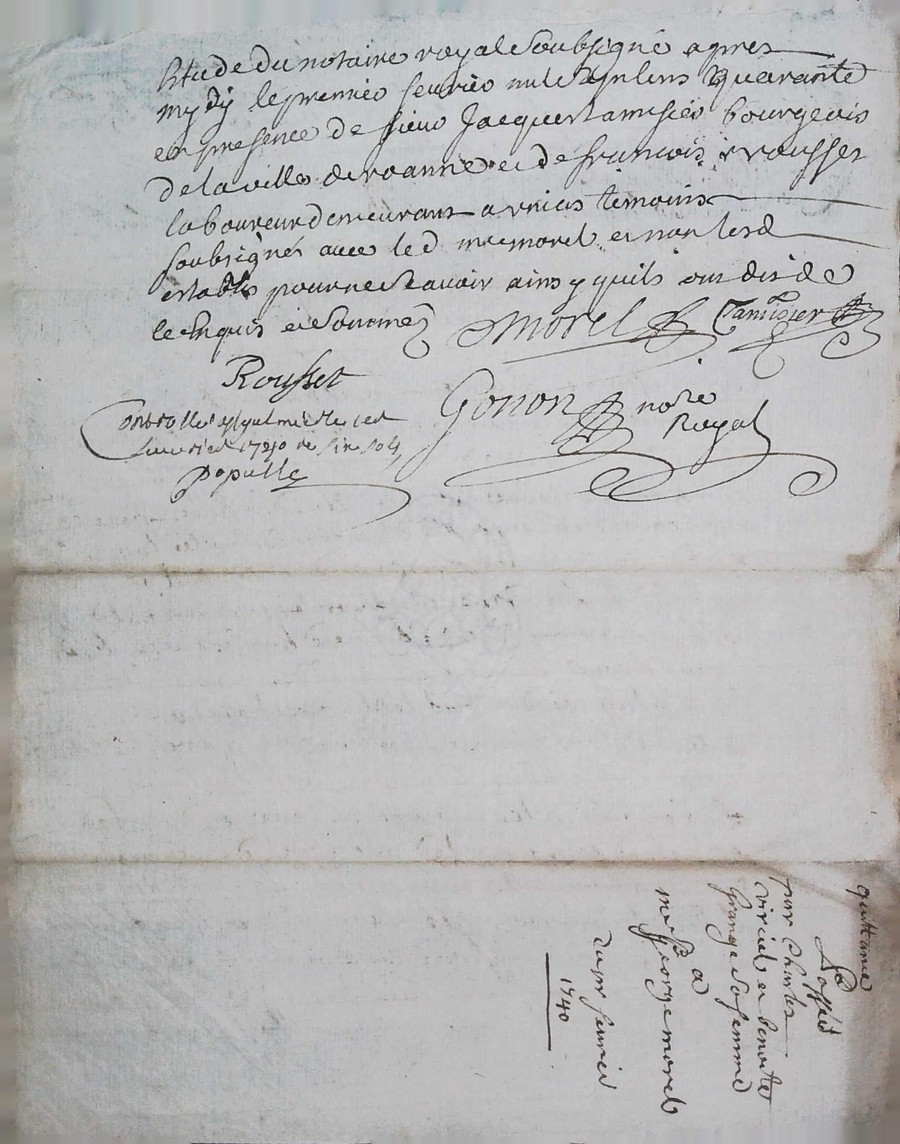 Etude du notaire royal soubsigné apres
mydy le premier fevrier mil sept cens quarante
en presence de sieur Jacques tamisier bourgeois
de la ville de roanne et de francois rousset
laboureur demeurant a temoins
soubsignés avec led mre morel et non lesd
establis pour ne scavoir ainsy quils ont dit de
ce enquis et sommes
Morel Tamisier
Rousset
Gonon nore
Royal
Controllé
fevrier 1740
populle
quittance
passée
par Charles
virial et benoite
grange sa femme
a
me George morel
du per fevrier
1740